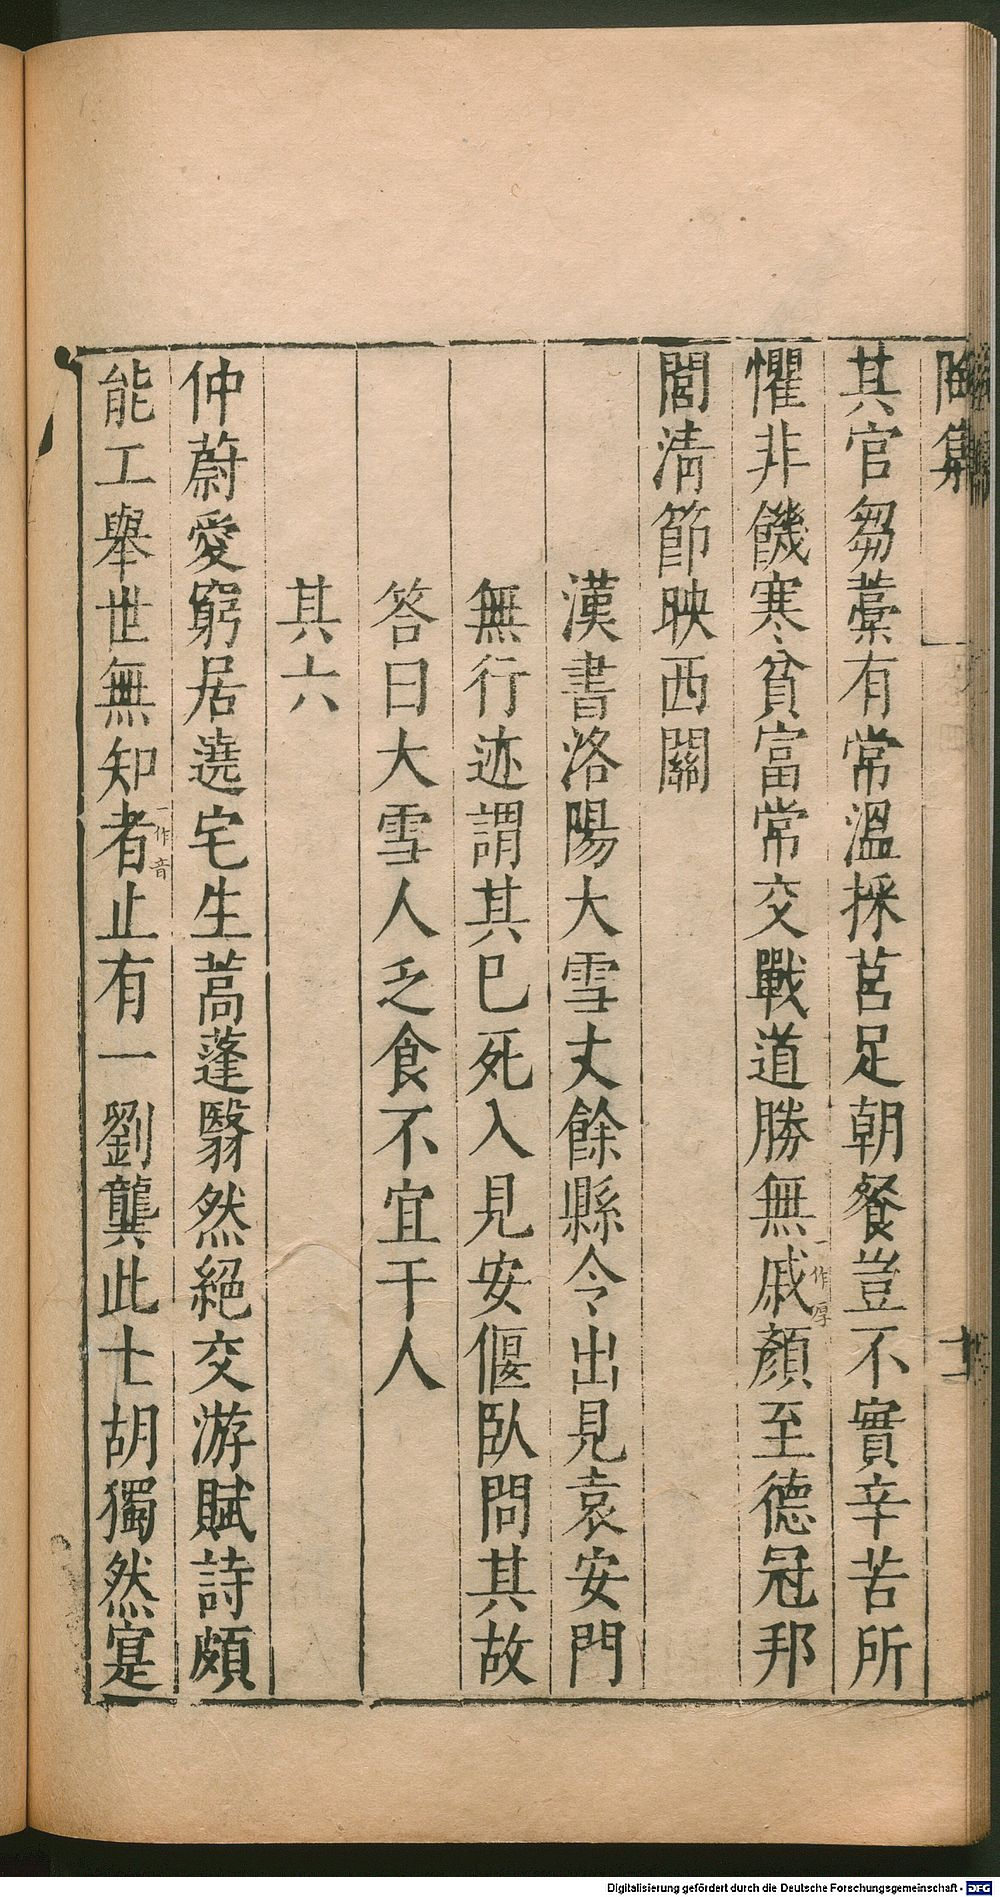 陶集
十一
其官芻藁有常溫採莒足朝餐豈不實辛苦所
懼非饑寒貧富常交戰道勝無戚顔至德冠邦
一作厚
閭淸節映西關
漢書洛陽大雪丈餘縣令出見袁安門
無行迹謂其已死入見安偃臥問其故
答曰大雪人乏食不宜干人
其六
仲蔚愛窮居遶宅生蒿蓬翳然絕交游賦詩頗
能工舉世無知者止有一劉龔此士胡獨然寔
一作音
Digitalisierung gefördert durch die Deutsche Forschungsgemeinschaft - DFG